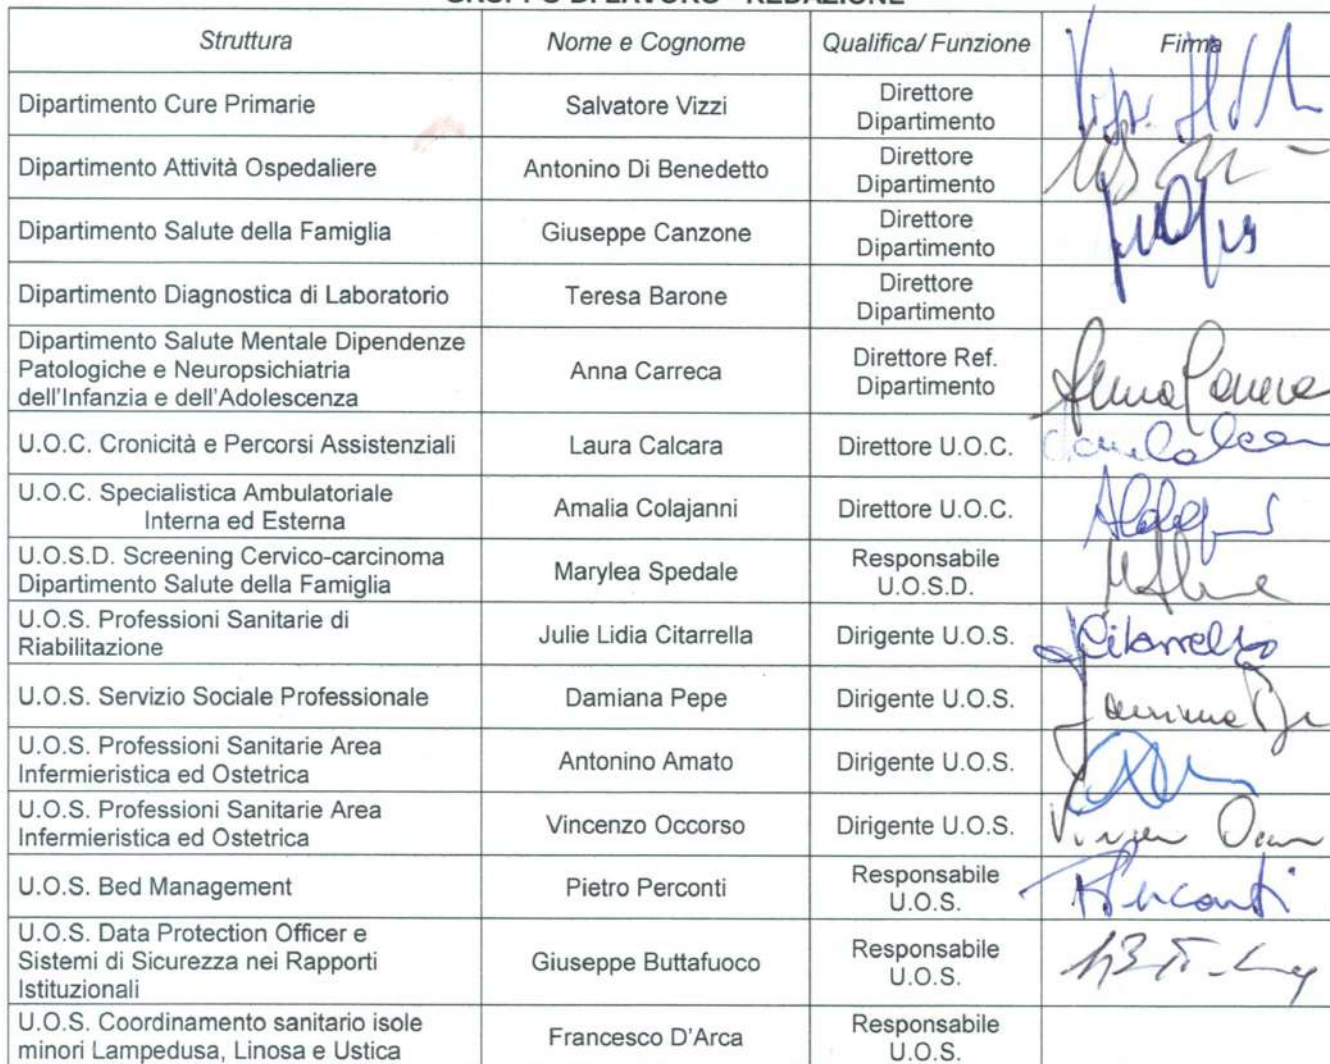 GRUPPO DI LAVORO - REDAZIONE
Struttura Nome e Cognome Qualifica/ Funzione Firma
Dipartimento Cure Primarie Salvatore Vizzi Direttore
Dipartimento
Dipartimento Attività Ospedaliere Antonino Di Benedetto Direttore
Dipartimento
Dipartimento Salute della Famiglia Giuseppe Canzone Direttore
Dipartimento
Dipartimento Diagnostica di Laboratorio Teresa Barone Direttore
Dipartimento
Dipartimento Salute Mentale Dipendenze
Patologiche e Neuropsichiatria
dell'Infanzia e dell'Adolescenza
Anna Carreca
Direttore Ref.
Dipartimento
U.O.C. Cronicità e Percorsi Assistenziali Laura Calcara Direttore U.O.C.
U.O.C. Specialistica Ambulatoriale
Interna ed Esterna
Amalia Colajanni Direttore U.O.C.
U.O.S.D. Screening Cervico-carcinoma
Dipartimento Salute della Famiglia
Marylea Spedale
Responsabile
U.O.S.D.
U.O.S. Professioni Sanitarie di
Riabilitazione
Julie Lidia Citarrella Dirigente U.O.S. Citarrella
U.O.S. Servizio Sociale Professionale Damiana Pepe Dirigente U.O.S.
U.O.S. Professioni Sanitarie Area
Infermieristica ed Ostetrica
Antonino Amato Dirigente U.O.S.
U.O.S. Professioni Sanitarie Area
Infermieristica ed Ostetrica
Vincenzo Occorso Dirigente U.O.S.
U.O.S. Bed Management Pietro Perconti Responsabile
U.O.S.
Perconti
U.O.S. Data Protection Officer e
Sistemi di Sicurezza nei Rapporti
Istituzionali
Giuseppe Buttafuoco
Responsabile
U.O.S.
U.O.S. Coordinamento sanitario isole
minori Lampedusa, Linosa e Ustica
Francesco D'Arca
Responsabile
U.O.S.